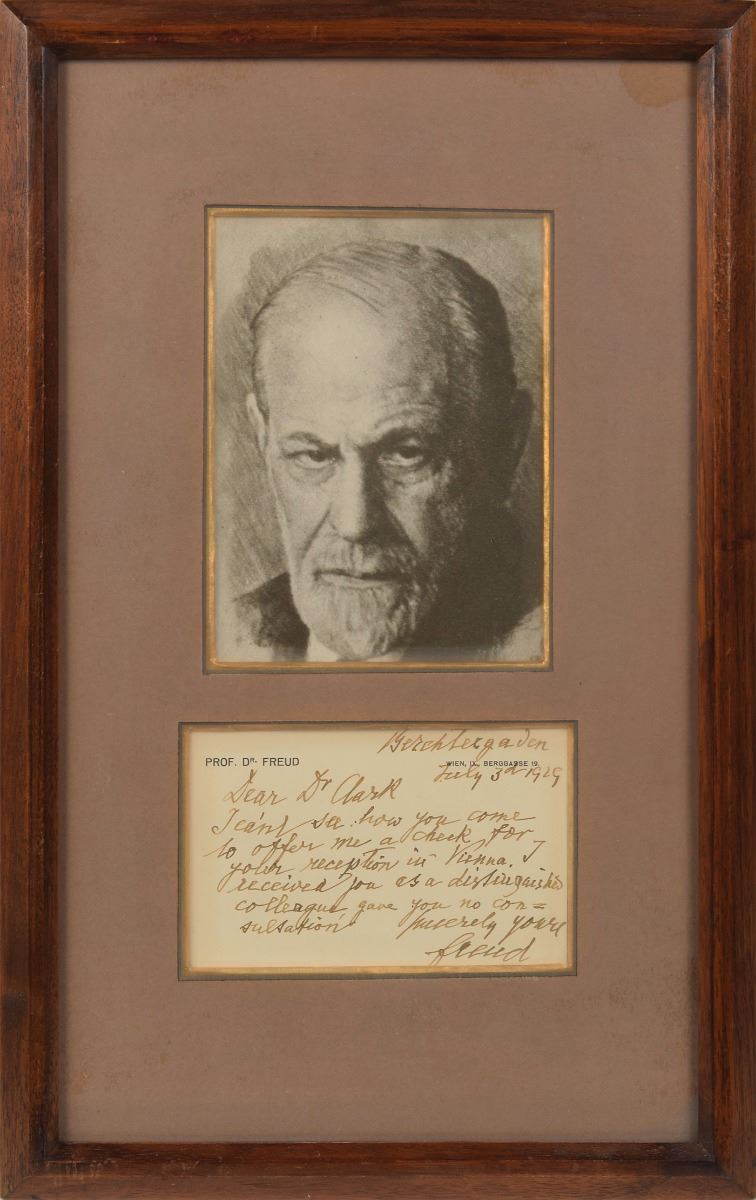 Berchtergaden
PROF. DR. FREUD
WIEN, IX., BERGGASSE 19.
July 3rd 1929
Dear Dr Clark
I can't see how you come
to offer me a check for
your reception in Vienna. I
received you as a distinguished
colleague gave you no con=
sultation
sincerely yours
Freud